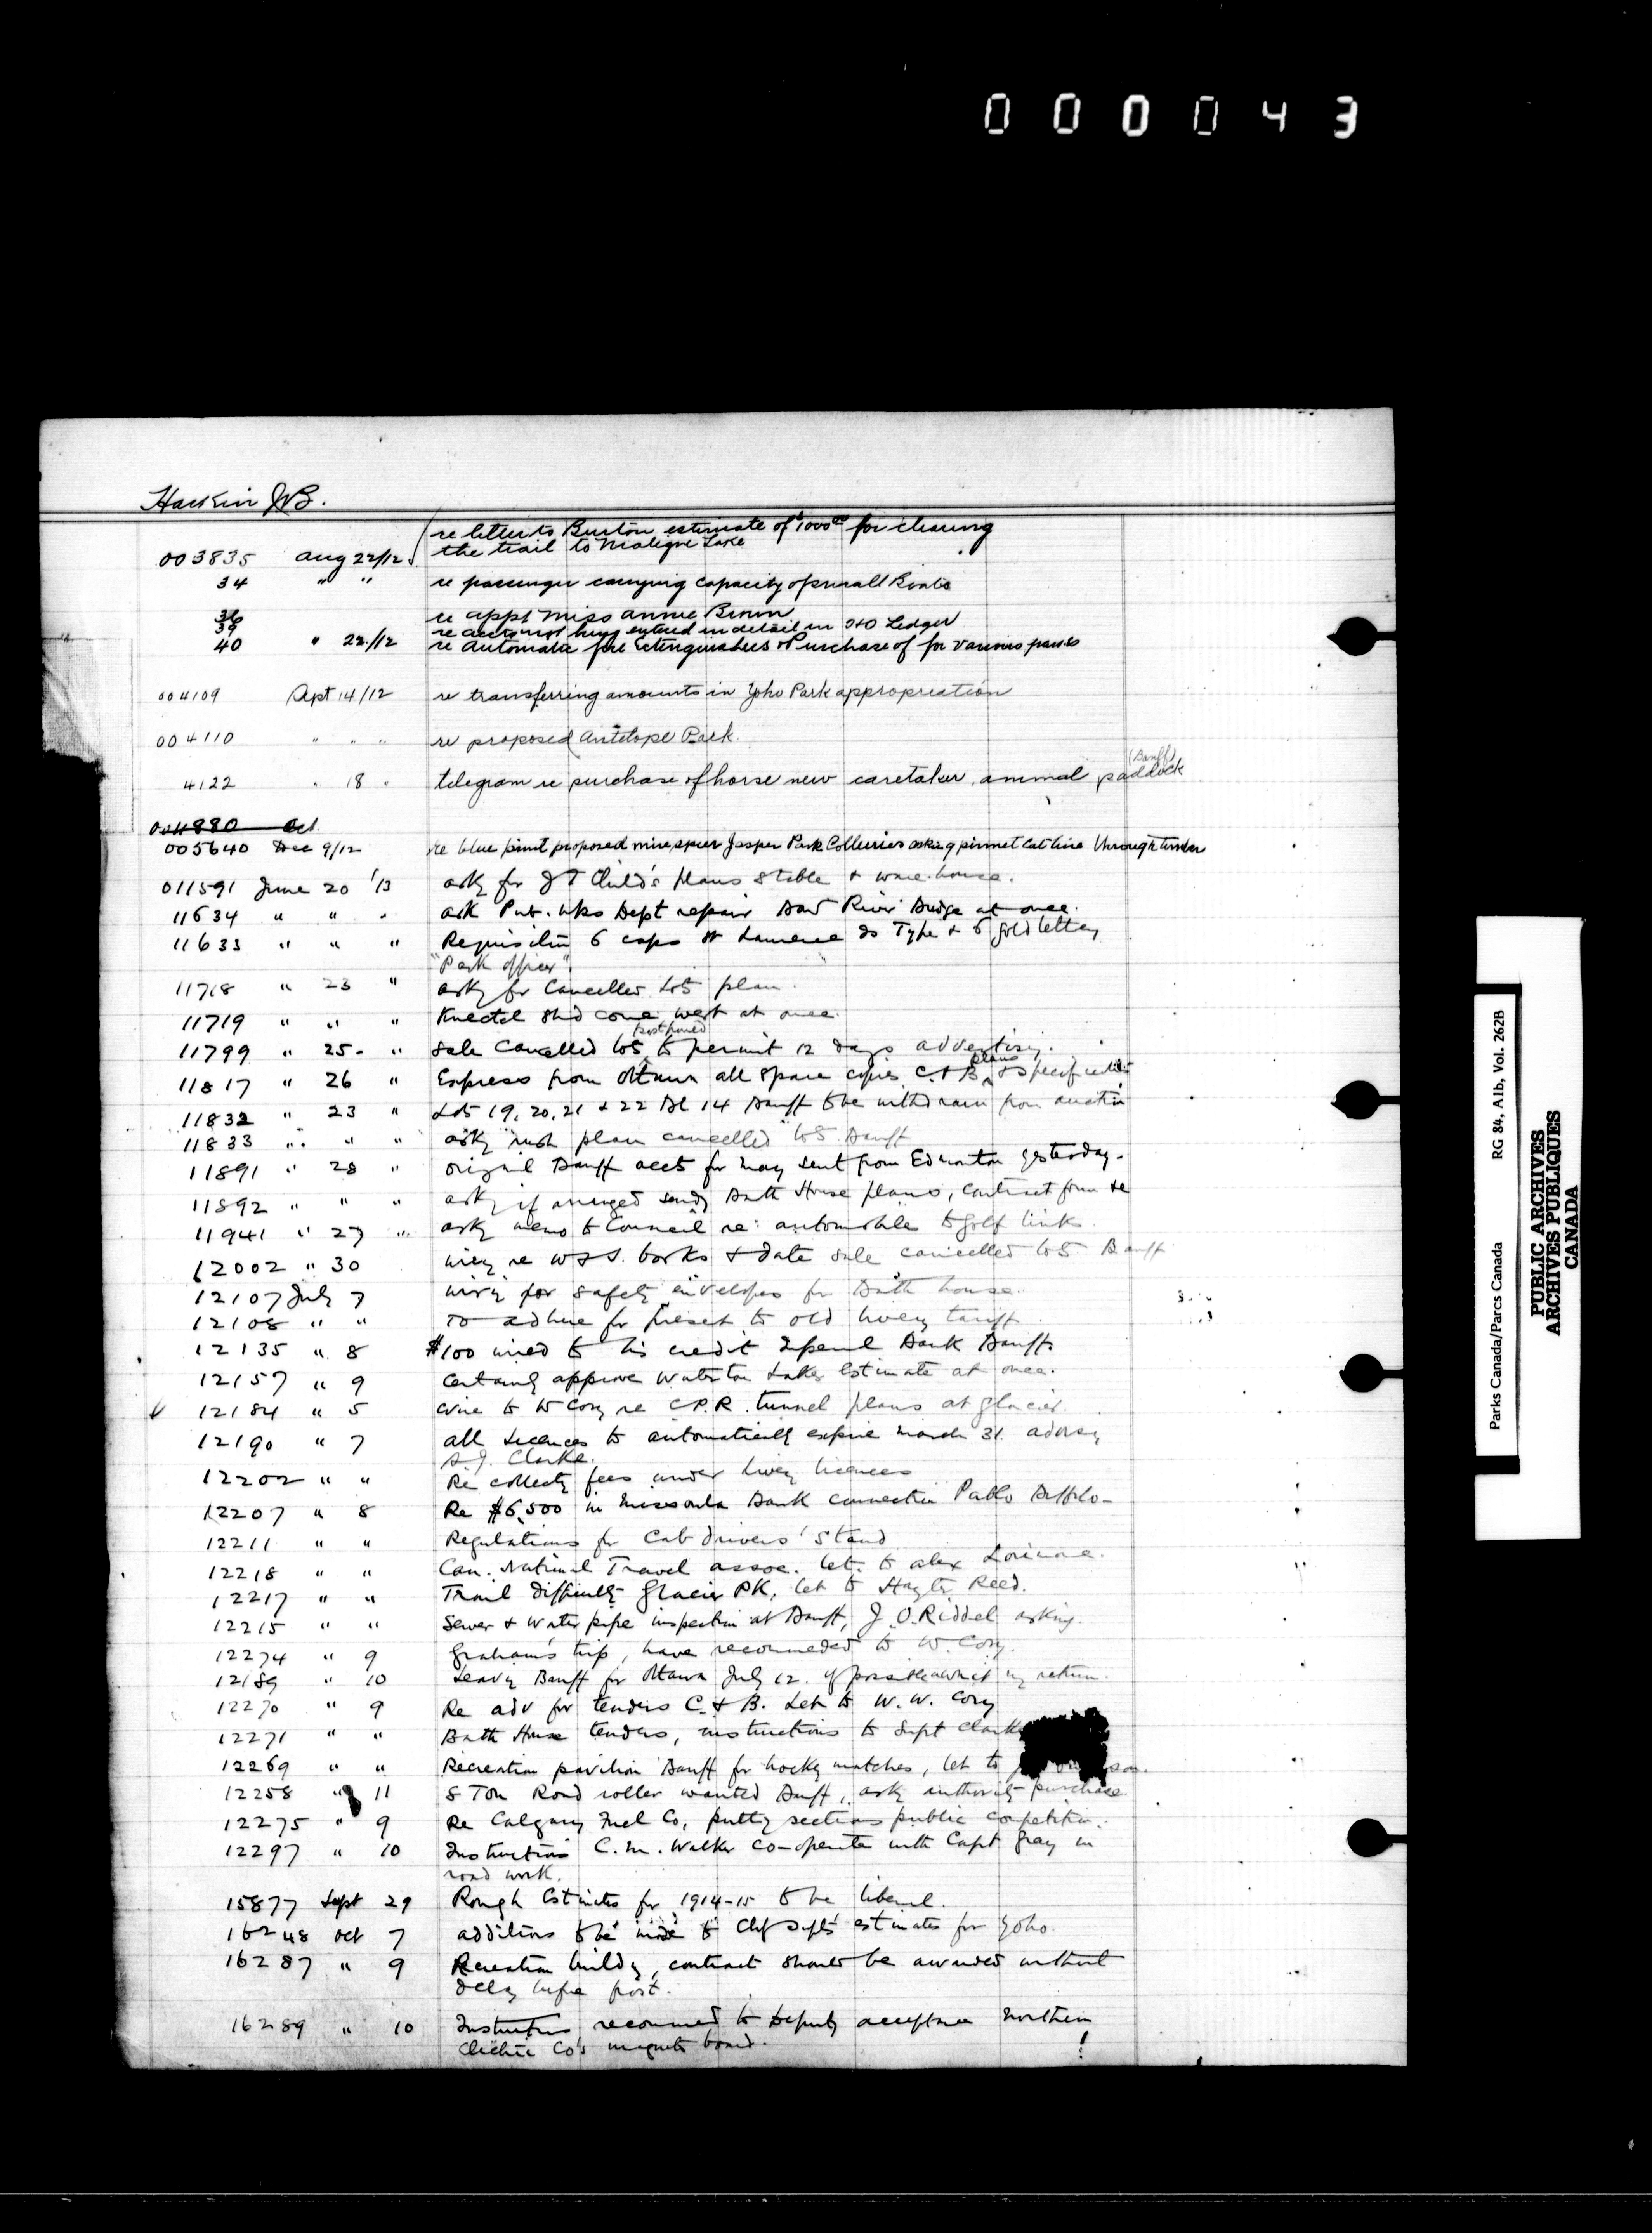 000043
Harkin JB.
re letter to Burton estimate of $1000.00 for clearing
003835 Aug 22/12 the trail to Maligne Lake
34 " " re passenger carrying capacity of small Boats
36 re appt Miss Annie Brown
39 re accts not being entered in detail in O+O Ledger
40 " 22/12 re Automatic fire Extinguishers & Purchase of for various parks
004109 Sept 14/12 re transferring amounts in Yoho Park appropriation
004110 " " " re proposed Antelope Park.
(Banff)
4122 " 18 " telegram re purchase of horse new caretaker animal paddock
004880 Oct
005640 Dec 9/12 re blue print proposed mine spur Jasper Park Collieries asking permit cut line through timber
011591 June 20 '13 askg for J T Child's plans stable + ware-house.
11634 " " " ask Pub. Wks Dept repair Bow River Bridge at once.
11633 " " " Requisition 6 caps St Lawrence Type + 6 gold letterg
"Park officer".
11718 " 23 " askg for cancelled lots plan.
11719 " " " Knechtel shd come west at once.
postponed
11799 " 25 " Sale cancelled lots to permit 12 days advertising.
plans
11817 " 26 " Express from Ottawa all spare copies C. & B. & specifications
11832 " 23 " Lots 19, 20, 21 & 22 Bl 14 Banff to be withdrawn from auction
11833 " " " askg rush plan cancelled lots Banff
11891 " 28 " original Banff accts for May sent from Edmonton yesterday.
11892 " " " askg if arranged sendg Bath House plans, contract form &c
11941 " 27 " askg memo to Council re: automobiles to golf links
12002 " 30 wirg re W & S. works & date sale cancelled lots Banff
12107 July 7 wirg for safety envelopes for Bath house.
12108 " " To adhere for present to old livery tariff
12135 " 8 $100 wired to his credit Imperial Bank Banff
12157 " 9 Certainly approve Waterton Lakes estimate at once.
12184 " 5 Wire to W Cory re C.P.R. tunnel plans at Glacier.
12190 " 7 All Licences to automatically expire March 31. advisg
S.J. Clarke.
12202 " " Re collectg fees under livery licences
12207 " 8 Re $6,500 in Missoula Bank connection Pablo Buffalo-
12211 " " Regulations for Cab drivers' Stand
12218 " " Can. National Travel assoc. let. to Alex
12217 " " Trail difficulty Glacier PK, let to Hayter Reed.
12215 " " Sewer & Water pipe inspection at Banff, J. O. Riddel asking.
12274 " 9 Graham's trip, have recommeded to W. Cory.
12189 " 10 Leavg Banff for Ottawa July 12. If possible await my return.
12270 " 9 Re adv for tenders C. & B. Let to W. W. Cory
12271 " " Bath House tenders, instructions to Supt Clarke
12269 " " Recreation pavilion Banff for hockey matches, let to
12258 " 11 8 Ton Road roller wanted Banff, askg authority purchase
12275 " 9 Re Calgary Fuel Co, puttg sections public competition.
12297 " 10 Instructions C. M. Walker co-operate with Capt Gray in
road work.
15877 Sept 29 Rough Estimates for 1914-15 to be liberal.
16248 Oct 7 additions to be made to Chf Supt's estimates for Yoho.
16287 " 9 Recreation buildg, contract should be awarded without
delay before frost.
16289 " 10 Instructions recommed to Deputy acceptance Northern
Electric Co's magneto board.
Parks Canada/Parcs Canada RG 84, A1b, Vol. 262B
PUBLIC ARCHIVES
ARCHIVES PUBLIQUES
CANADA